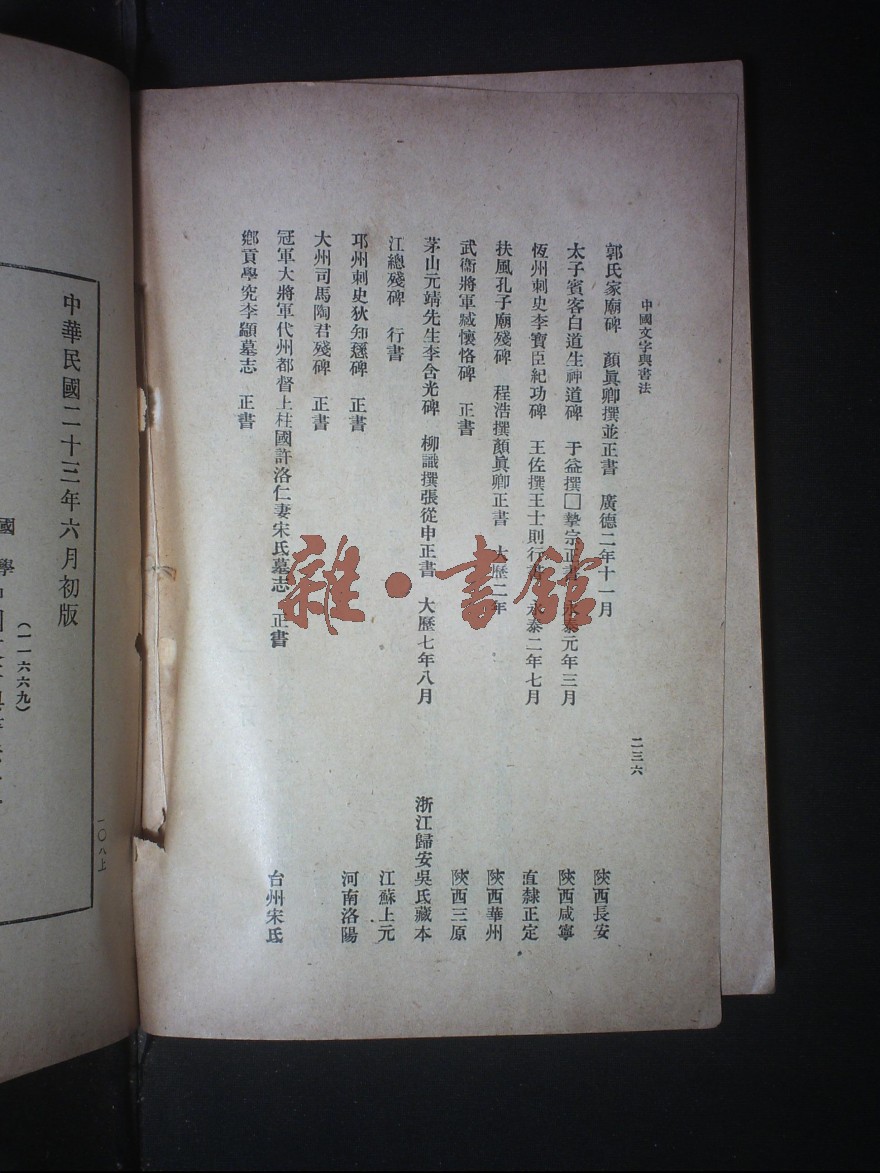 中國文字與書法
二三六
郭氏家廟碑 顏眞卿撰並正書 廣德二年十一月 陝西長安
太子賓客白道生神道碑 于益撰□摯宗正書 永泰元年三月 陝西咸寧
恆州刺史李寶臣紀功碑 王佐撰王士則行書 永泰二年七月 直隸正定
扶風孔子廟殘碑 程浩撰顏眞卿正書 大歷二年 陝西華州
武衞將軍臧懷恪碑 正書 陝西三原
茅山元靖先生李含光碑 柳識撰張從申正書 大歷七年八月 浙江歸安吳氏藏本
江總殘碑 行書 江蘇上元
邛州刺史狄知愻碑 正書 河南洛陽
大州司馬陶君殘碑 正書
冠軍大將軍代州都督上柱國許洛仁妻宋氏墓志 正書 台州宋氏
鄉貢學究李顓墓志 正書
雜·書館
中華民國二十三年六月初版
(一一六六九)
國學
一〇八上